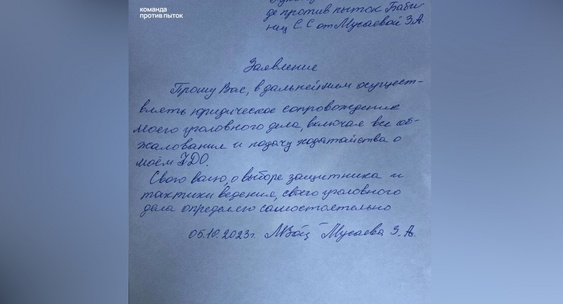 команда
против пыток
де против пыток Баби
нец С С от Мусаевой З.А.
Заявление
Прошу Вас, в дальнейшем осущест-
влять юридическое сопровождение
моего уголовного дела, включая все об-
жалования и подачу ходатайства о
моём УДО.
Свою волю, о выборе защитника и
тактики ведения, своего уголовного
дела определяю самостоятельно
05.10.2023г Мусаева З.А.